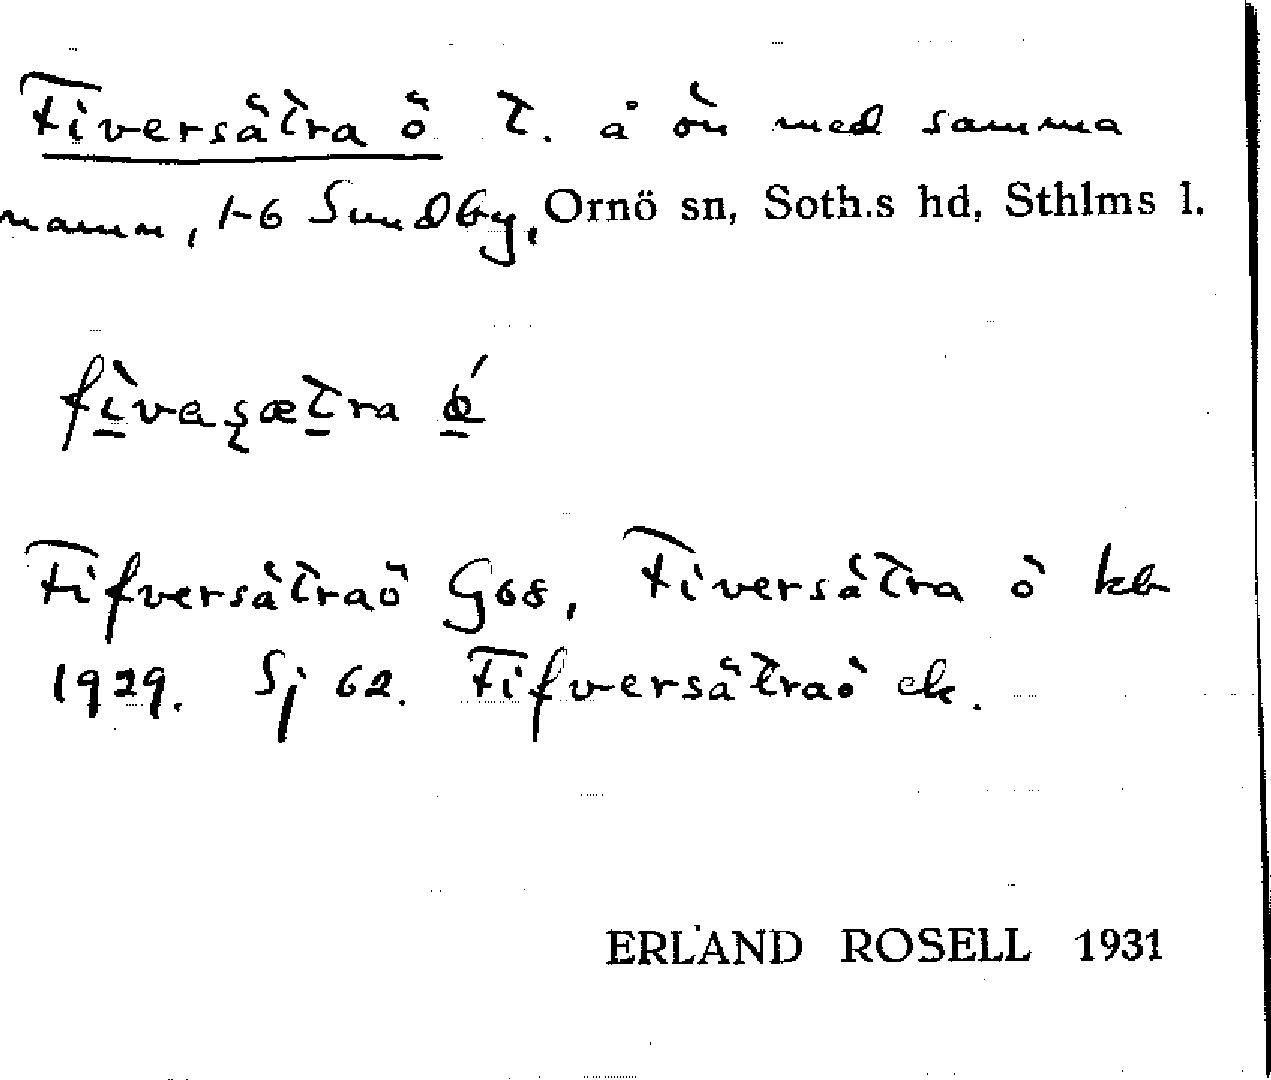 Fiversätra ö T. å ön med samma
namn, 1-6 Sundby, Ornö sn, Soth.s hd, Sthlms l.
fìvaşætra ǿ
Fifversätraö Gös, Fiversätra ö kb
1929. Sj 62. Fifversätraö ek.
ERLAND ROSELL 1931